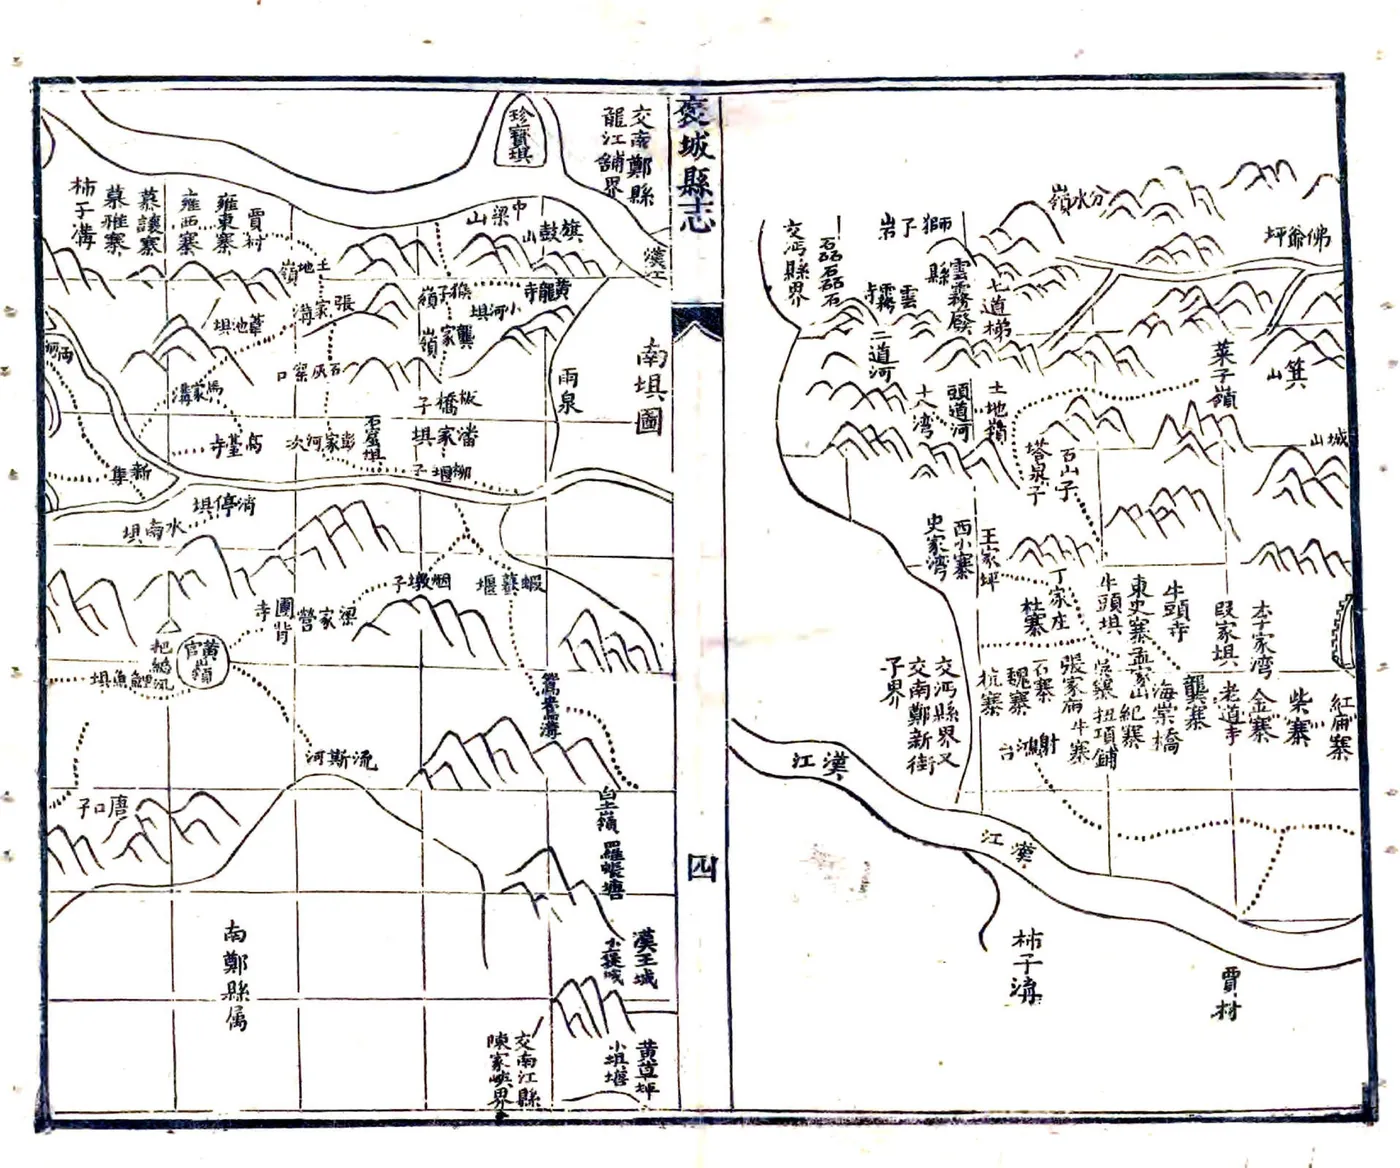 褒城縣志
四
分水嶺
佛爺坪
獅子岩
石磊石磊石
交沔縣界
雲霧寺
雲霧廢縣
七道梯
二道河
頭道河
土地嶺
菜子嶺
箕山
城山
石山子
塔泉子
王家坪
西小寨
史家湾
丁家庄
杜寨
牛頭垻
東史寨
孟家山
牛頭寺
段家垻
李子家湾
紅庙寨
柴寨
金寨
老道寺
龔寨
海棠橋
紀寨
扭項鋪
牛寨
張家庙
石寨
魏寨
杭寨
射鴻台
交沔縣界又
交南鄭新街
子界
漢江
漢江
柿子溝
賈村
南垻圖
交南鄭縣
龍江舖界
珍寶垻
漢江
旗鼓山
中梁山
黃龍寺
小河垻
猴子嶺
龔家嶺
賈村
雍東寨
雍西寨
慕讓寨
慕雅寨
柿子溝
土地嶺
張家溝
葦池垻
石灰窑口
馬家溝
雨泉
板橋子
潘家垻
石崖垻
彭家河次
高臺寺
柳堰子
新集
消停垻
水南垻
蝦蟇堰
烟墩子
梁家營
團背寺
黃官嶺
把總汛
鯉魚垻
鴛鴦溝
流斯河
唐口子
白土嶺
羅帳塘
漢王城
小褒城
黃草坪
小垻堰
交南江縣
陳家峽界
南鄭縣属